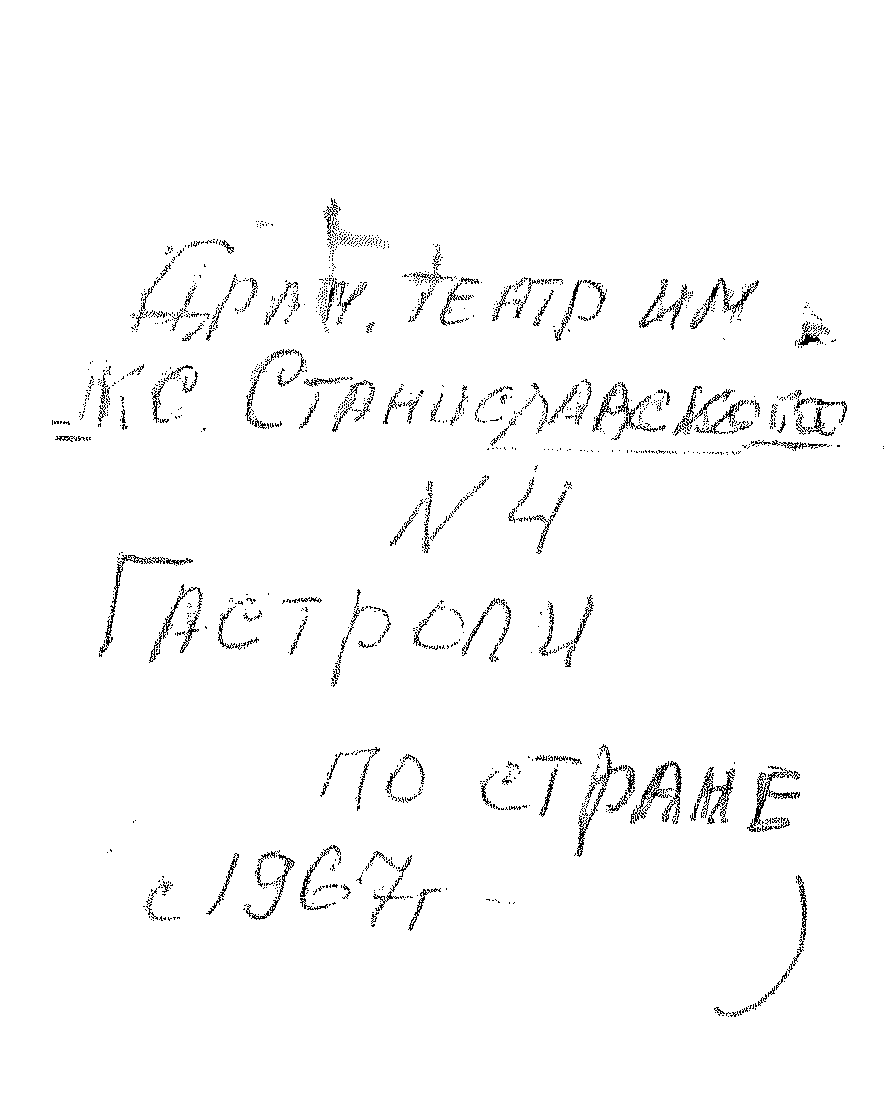 Драм. театр им.
КС. Станиславского
N 4
Гастроли
по стране
с 1967г -